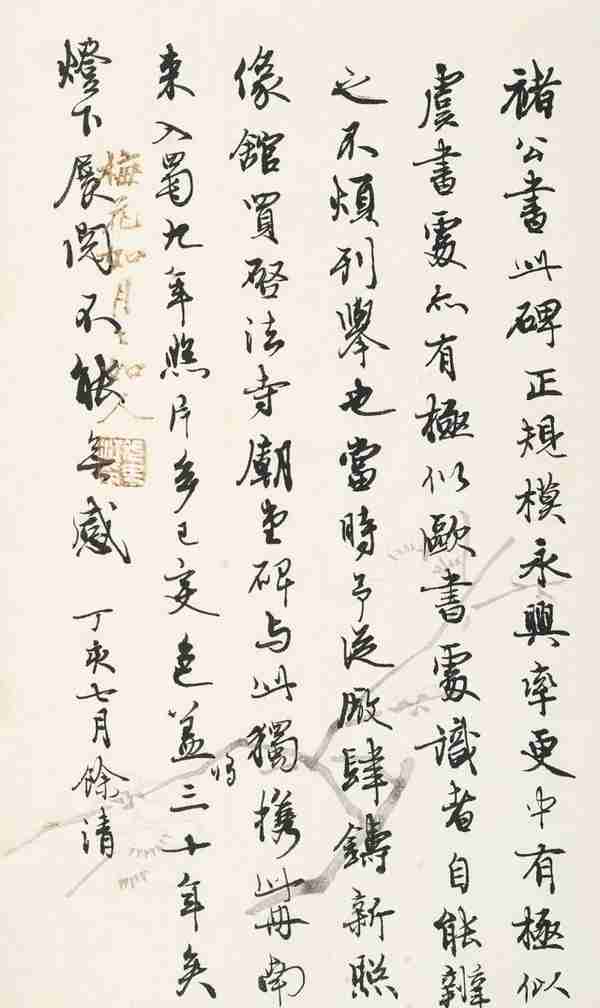 褚公書此碑正規模永興率更中有極似
虞書處亦有極似歐書處識者自能辨
之不煩列舉也當時予從廠肆鑄新照
像館買啓法寺廟堂碑与此獨攜此冊南
來入蜀九年照片多已变色蓋将三十年矣
燈下展閱不能無感 丁亥七月餘清
梅花如月月如人